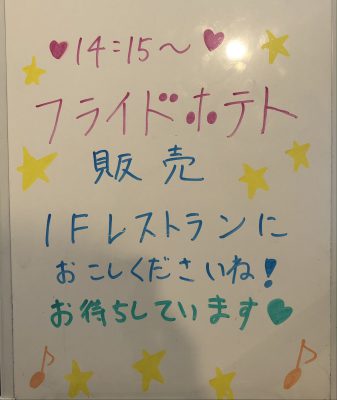 ♥14:15〜♥
フライドポテト
販売
1Fレストランに
おこしくださいね!
お待ちしています♥